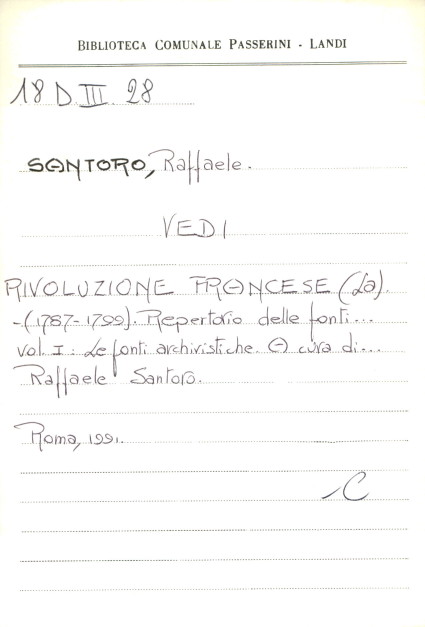 BIBLIOTECA COMUNALE PASSERINI - LANDI
18 D III 28
SANTORO, Raffaele.
VEDI
RIVOLUZIONE FRANCESE (La).
-(1787-1799). Repertorio delle fonti...
vol. I: Le fonti archivistiche. A cura di...
Raffaele Santoro.
Roma, 1991.
C